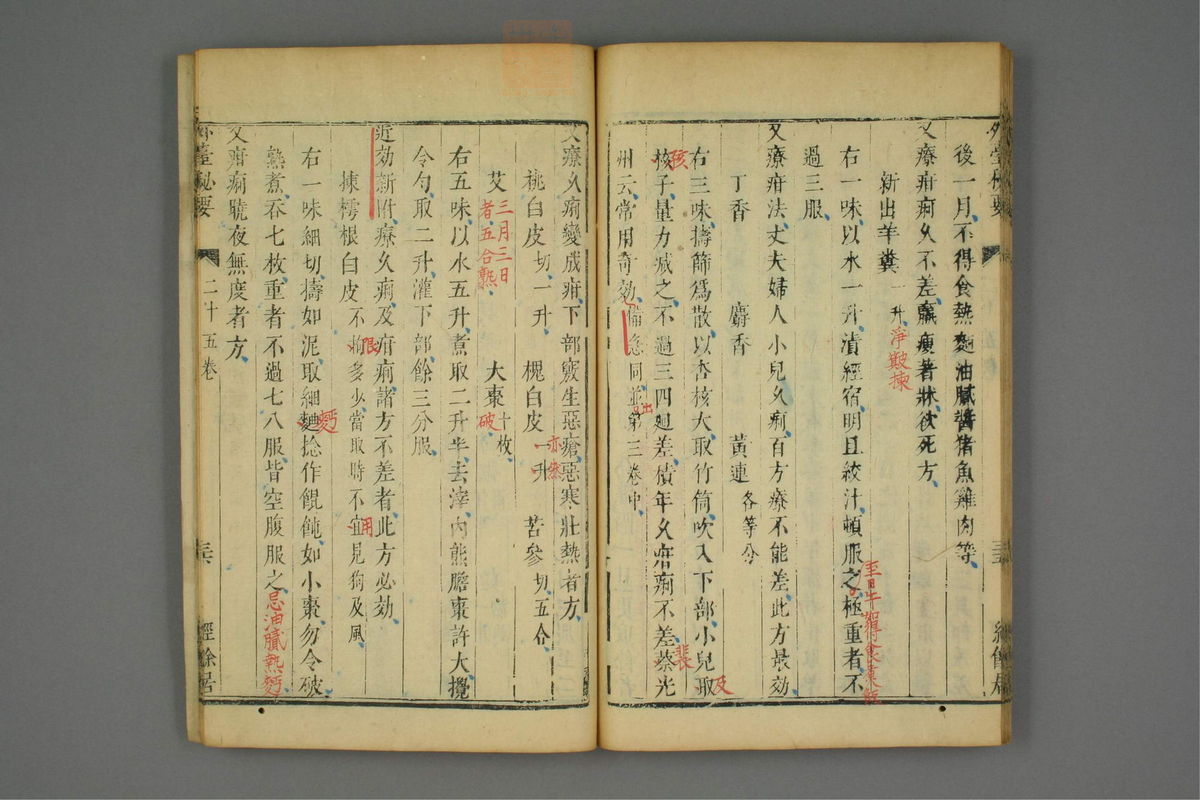 後一月不得食熱麪油膩醬猪魚雞肉等
又療疳痢久不差羸瘦著牀欲死方
新出羊糞一升淨皴揀
右一味以水一升漬經宿明旦絞汁頓服之極重者不
至日午得食
過三服
又療疳法丈夫婦人小兒久痢百方療不能差此方最効
丁香 麝香 黄連各等分
右三味擣篩爲散以杏核大取竹筒吹入下部小兒取
及
孩
核子量力減之不過三四廻差積年久疳痢不差蔡光
裴
州云常用奇効備急同並第三卷中
出
外臺秘要
經餘居
又療久痢變成疳下部竅生惡瘡惡寒壯熱者方
桃白皮切一升 槐白皮一升 苦參切五合
亦然
艾三月三日者五合熟 大棗十枚破
右五味以水五升煮取二升半去滓内熊膽棗許大攪
令勻取二升灌下部餘三分服
近効新附療久痢及疳痢諸方不差者此方必効
揀樗根白皮不拘多少當取時不宜見狗及風
限
用
右一味細切擣如泥取細麵捻作餛飩如小棗勿令破
麪
熟煮吞七枚重者不過七八服皆空腹服之忌油膩熱麪
又疳痢曉夜無度者方
外臺秘要 二十五卷 經餘居